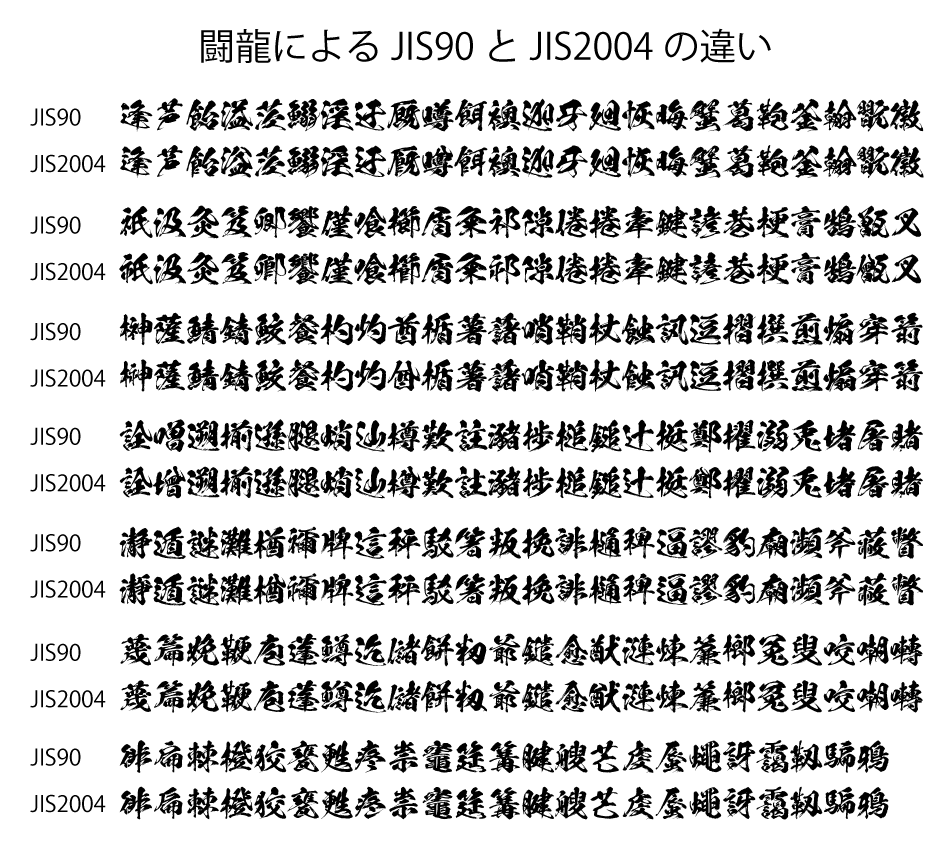 闘龍による JIS90 と JIS2004 の違い
JIS90 逢芦飴溢茨鰯淫迂厩噂餌襖迦牙廻恢晦蟹葛鞄釜翰翫徽
JIS2004 逢芦飴溢茨鰯淫迂厩噂餌襖迦牙廻恢晦蟹葛鞄釜翰翫徽
JIS90 祇汲灸笈卿饗僅喰櫛屑粂祁隙倦捲牽鍵諺巷梗膏鵠甑叉
JIS2004 祇汲灸笈卿饗僅喰櫛屑粂祁隙倦捲牽鍵諺巷梗膏鵠甑叉
JIS90 榊薩鯖錆鮫餐杓灼酋楯薯藷哨鞘杖蝕訊逗摺撰煎煽穿箭
JIS2004 榊薩鯖錆鮫餐杓灼酋楯薯藷哨鞘杖蝕訊逗摺撰煎煽穿箭
JIS90 詮噌遡揃遜腿蛸辿樽歎註瀦捗槌鎚辻挺鄭擢溺兎堵屠賭
JIS2004 詮噌遡揃遜腿蛸辿樽歎註瀦捗槌鎚辻挺鄭擢溺兎堵屠賭
JIS90 瀞遁謎灘楢禰牌這秤駁箸叛挽誹樋稗逼謬豹廟瀕斧蔽瞥
JIS2004 瀞遁謎灘楢禰牌這秤駁箸叛挽誹樋稗逼謬豹廟瀕斧蔽瞥
JIS90 蔑篇娩鞭庖蓬鱒迄儲餅籾爺鑓愈猷漣煉簾榔冤叟咬嘲囀
JIS2004 蔑篇娩鞭庖蓬鱒迄儲餅籾爺鑓愈猷漣煉簾榔冤叟咬嘲囀
JIS90 徘扁棘橙狡甕甦疼祟竈筵篝腱艘芒虔蜃蠅訝靄靱騙鴉
JIS2004 徘扁棘橙狡甕甦疼祟竈筵篝腱艘芒虔蜃蠅訝靄靱騙鴉